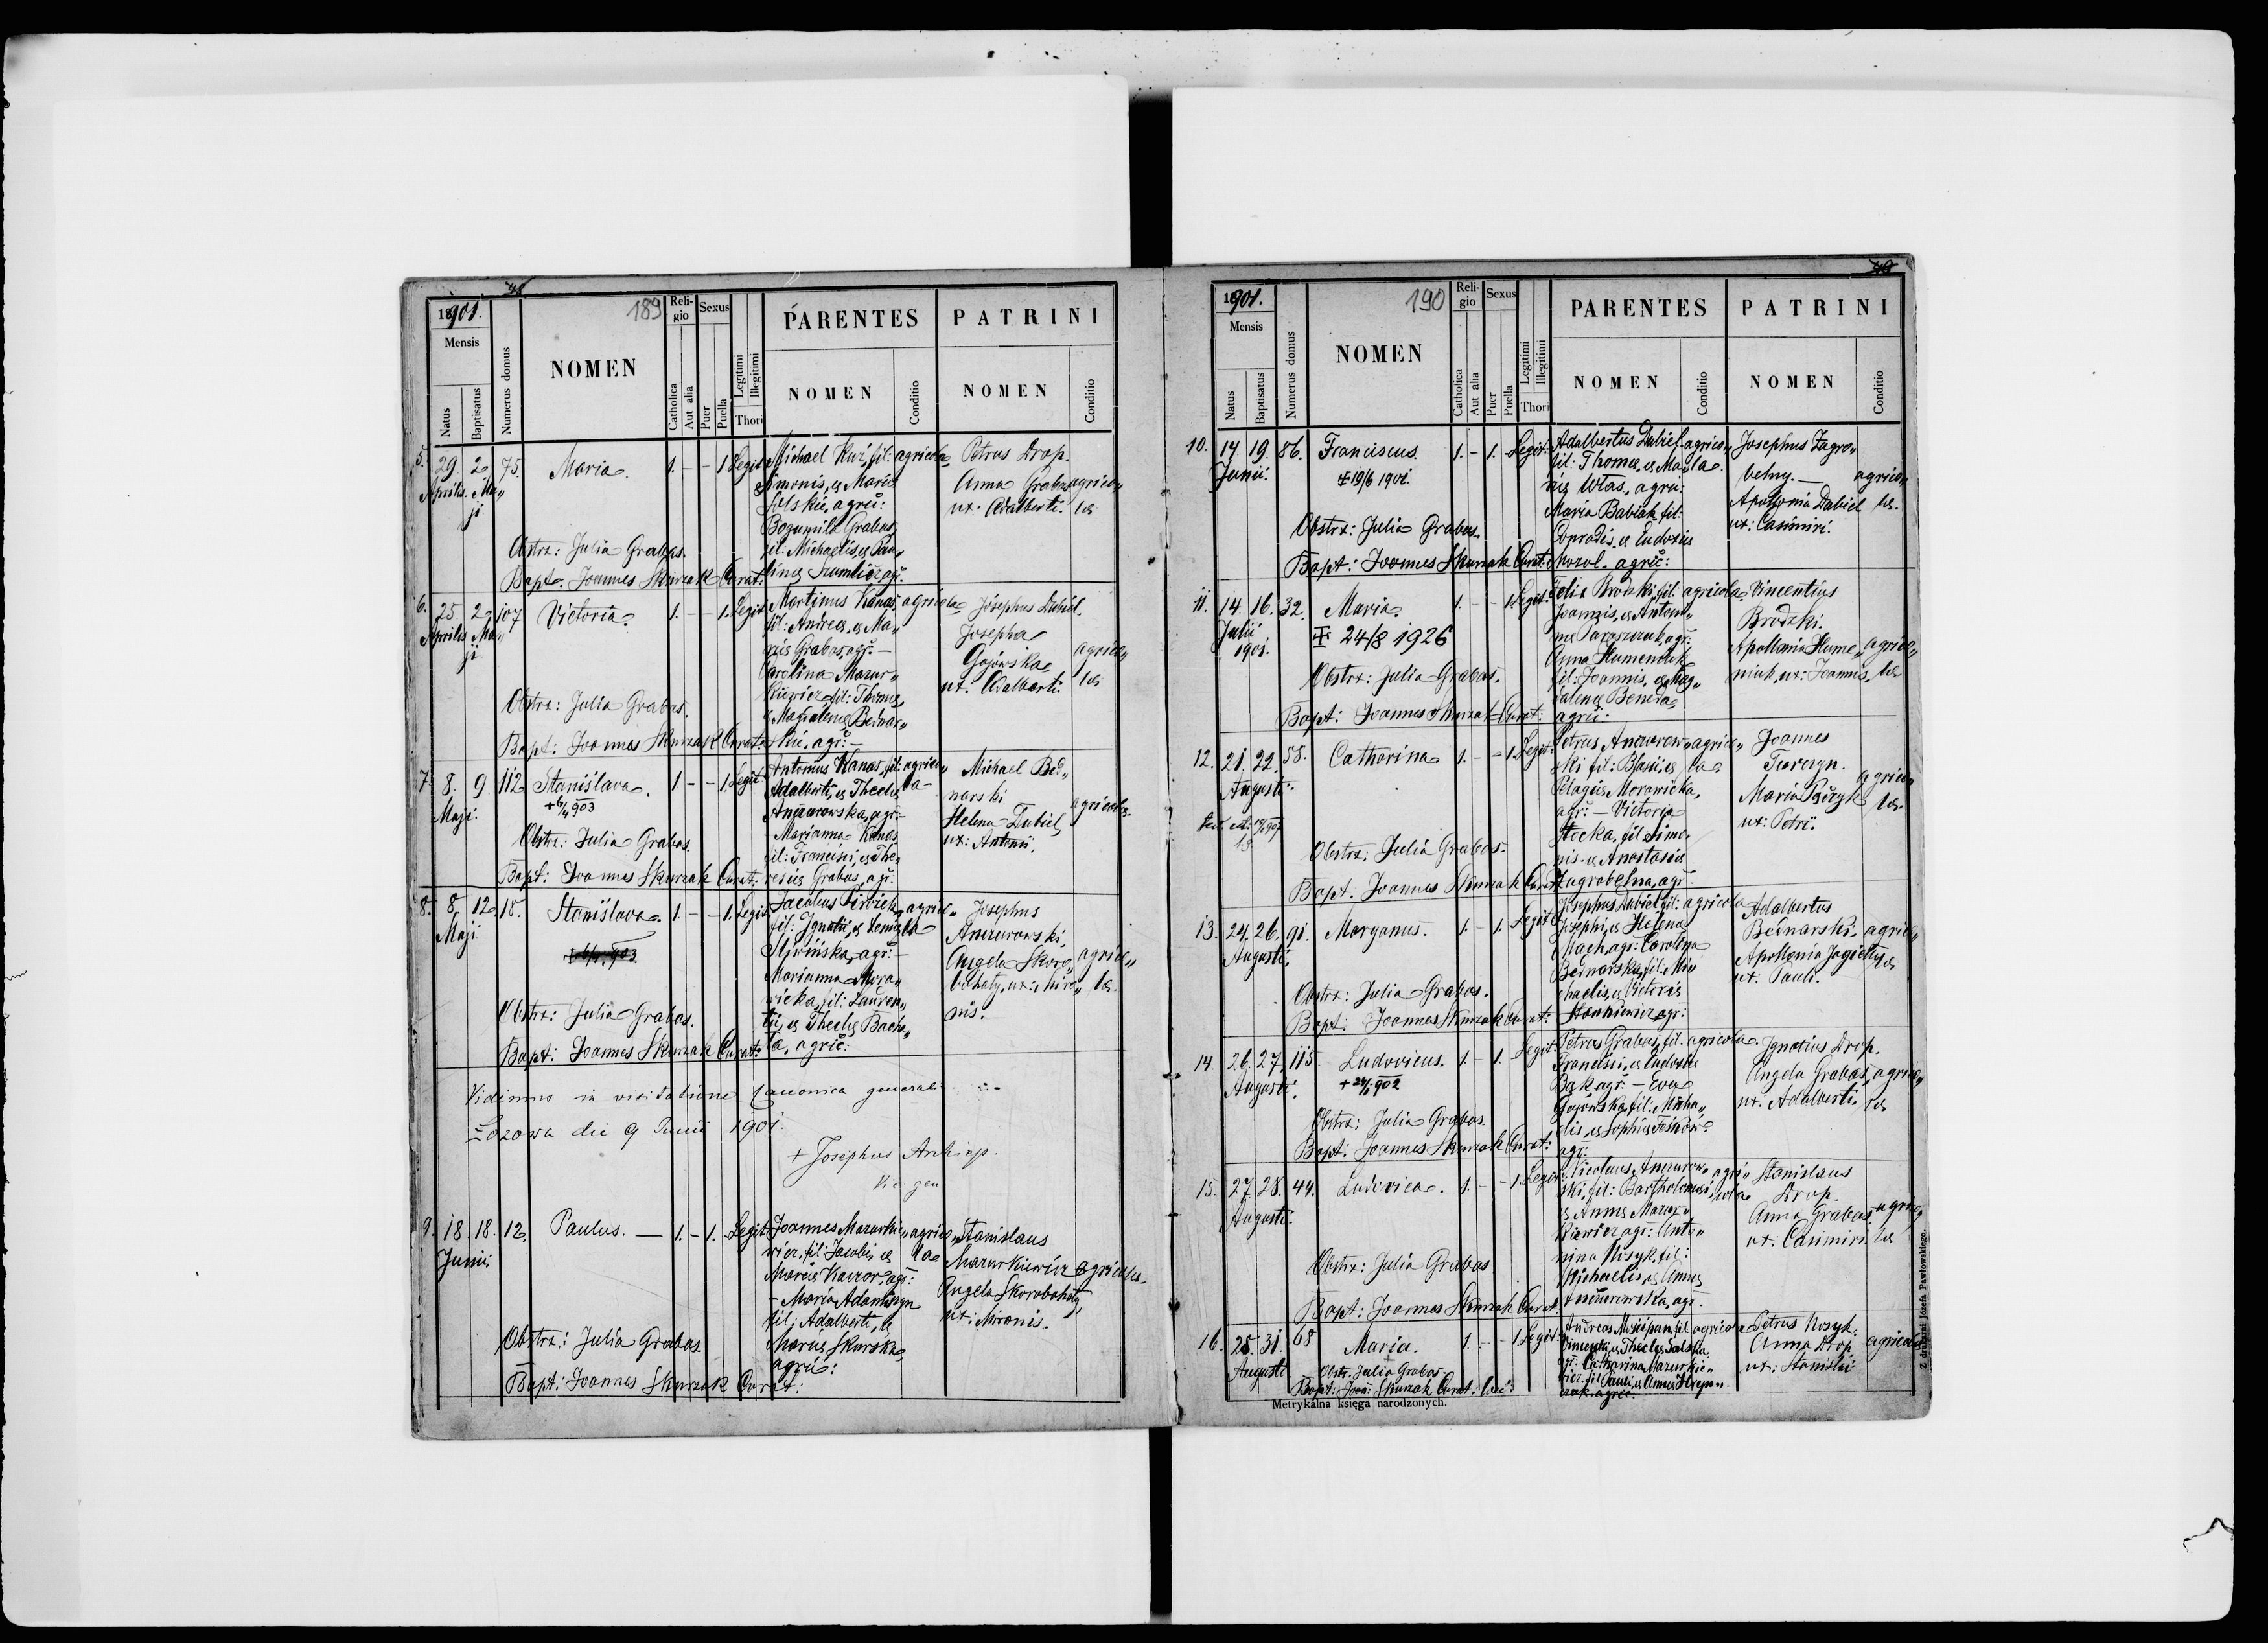 48
1901.
189
Mensis
Natus
Baptisatus
Numerus domus
NOMEN
Reli-
gio
Catholica
Aut alia
Sexus
Puer
Puella
Legitimi
Illegitimi
Thori
PARENTES
NOMEN
Conditio
PATRINI
NOMEN
Conditio
5.
29. 2 75. Maria. 1. - - 1. Legit:
Aprilis. Ma„
ji
Michael Kuź, fil: agricola
Simonis, et Maria
agric:
Bogumila Grabas,
fil: Michaelis et Pau„
lina
Petrus Drop.
Anna Grabas agrico„
ux: Adalberti. lae
Obstrx: Julia Grabas.
Bapt: Joannes Skurzak Curat:
6.
25 2 107 Victoria. 1. - - 1. Legit:
Aprilis Ma„
ji
Martinus Kanas, agricola
fil: Andreae, et Ma„
riae Grabas, agr: –
Carolina Mazur„
kiewicz, fil: Thomae,
et Magdalenae Bednar„
skie, agr: –
Josephus Dubiel.
Josepha
Gajówska, agrico„
ux: Adalberti. lae
Obstrx: Julia Grabas.
Bapt: Joannes Skurzak Curat:
7.
8. 9. 112 Stanislava. 1. - - 1. Legit
Maji.
+ 6/4 903
Antonius Kanas, fil: agrico„
Adalberti, et Theclae la –
Anczurowska, agr: –
– Marianna Kanas
fil: Francisci, et The„
resiae Grabas, agr:
Michael Bed„
narski
Helena Dubiel, agricolae
ux: Antonii.
Obstrx: Julia Grabas.
Bapt: Joannes Skurzak Curat:
8.
8. 12. 18. Stanislava. 1. - - 1. Legit
Maji.
Jacobus agrico„
fil: Ignatii, et la
agr: –
Marianna Mora„
wicka, fil: Lauren„
tii, et Theclae Bacha„
ta, agric:
Josephus
Anczurowski,
Angela Skoro„ agrico„
bohaty, ux: Miro„ lae.
nis.
Obstrx: Julia Grabas.
Bapt: Joannes Skurzak Curat:
Vidimus in visitatione Canonica generali
Łozowa die 9 Junii 1901.
+ Josephus Archiep.
Vic gen
9.
18. 18. 12. Paulus. – 1. - 1. - Legit
Junii
Joannes Mazurkie„ agrico„
wicz, fil: Jacobi, et la
Mariae Kaczor, agr:
– Maria Adamczyn
fil: Adalberti, et
Mariae Skurska,
agric:
Stanislaus
Mazurkiewicz agricolae.
Angela Skorobohaty
ux: Mironis.
Obstrx: Julia Grabas
Bapt: Joannes Skurzak Curat:
49
1901.
190
Mensis
Natus
Baptisatus
Numerus domus
NOMEN
Reli-
gio
Catholica
Aut alia
Sexus
Puer
Puella
Legitimi
Illegitimi
Thori
PARENTES
NOMEN
Conditio
PATRINI
NOMEN
Conditio
10. 17. 19. 86. Franciscus. 1. - 1. Legit:
Junii.
19/6 1901.
Adalbertus Dubiel agrico„
fil: Thomae, et Ma„ la.
riae Włas, agric:
Maria Babiak, fil:
Conradis, et Eudoxiae
agric:
Josephus Zagro„
belny. – agrico„
Apollonia Dubiel lae.
ux: Casimiri.
Obstrx: Julia Grabas.
Bapt: Joannes Skurzak Curat:
11. 14. 16. 32. Maria. 1. - - 1. Legit:
Julii
1901.
24/8 1926
Felix Brodzki, fil: agricola
Joannis, et Antoni„
nae agr:
Anna Humeniuk
fil: Joannis, et Mag„
dalenae
agric:
Vincentius
Brodzki.
Apollonia Hume„ agrico„
niuk, ux: Joannis. lae.
Obstrx: Julia Grabas.
Bapt: Joannes Skurzak Curat:
12. 21. 22. 58. Catharina. 1. - - 1. Legit:
Augusti.
Petrus Anczurow„ agrico„
ski fil: Blasii, et la
Pelagiae Morawicka,
agr: – Victoria
fil: Simo„
nis et Anastasiae
Zagrobelna, agr:
Joannes
agrico„
Maria lae.
ux: Petri.
Obstrx: Julia Grabas.
Bapt. Joannes Skurzak Curat
13. 24. 26. 91. Maryanus. 1. - 1. Legit:
Augusti.
Josephus Dubiel fil: agricola
Josephi, et Helena
Mach, agr: Carolina
Bednarska, fil: Mi„
chaelis, et Victoriae
Stankiewicz agr:
Adalbertus
Bednarski. agrico„
Apollonia lae
ux: Pauli.
Obstrx: Julia Grabas.
Bapt: Joannes Skurzak Curat:
14. 26. 27. 115. Ludovicus. 1. - 1. Legit:
Augusti.
Petrus Grabas, fil: agricola.
Francisci, et Eudoxiae
Bak agr: – Eva
Gajówska, fil: Micha„
elis, et Sophiae
agr:
Ignatius Drop.
Angela Grabas, agrico„
ux. Adalberti. lae
Obstrx: Julia Grabas
Bapt: Joannes Skurzak Curat:
15. 27. 28. 44. Ludovica. 1. - - 1. Legit:
Augusti.
Nicolaus Anczurow„ agri„
ski, fil: Bartholomaei, cola
et Annae Mazur„
kiewicz agr: Anto„
nina Nosyk, fil:
Michaelis et Annae
Anczurowska, agr.
Stanislaus
Drop.
Anna Grabas, agrico„
ux: Casimiri. lae
Obstrx: Julia Grabas
Bapt: Joannes Skurzak Curat.
16. 28. 31. 68 Maria. 1. - - 1. Legit:
Augusti
Andreas fil: agricola
Vincentii, et Theclae
agr: Catharina Mazurkie„
wicz, fil: Pauli, et Annae
agric:
Petrus Nosyk.
Anna Drop agricolae
ux: Stanislai
Obstr: Julia Grabas
Bapt: Joan: Skurzak Curat:
Metrykalna księga narodzonych.
Z drukarni Józefa Pawłowskiego.